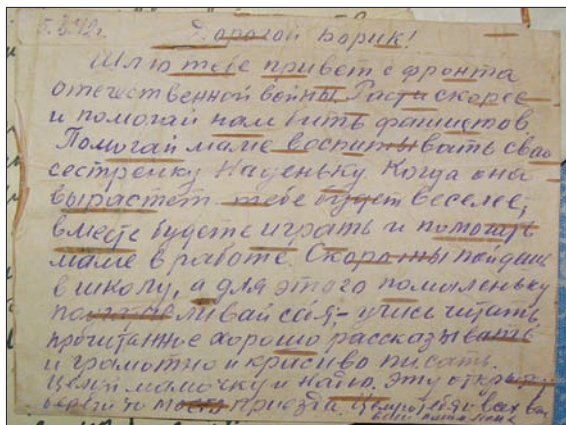 Дорогой Борик!
Шлю тебе привет с фронта
отечественной войны. Расти скорее
и помогай нам бить фашистов.
Помогай маме воспитывать свою
сестренку Наденьку. Когда она
вырастет тебе будет веселее,
вместе будете играть и помогать
маме в работе. Скоро ты пойдешь
в школу, а для этого помаленьку
себя, - учись читать
прочитанное хорошо рассказывать
и грамотно и красиво писать.
Целуй мамочку и Надю. Эту открыт-
береги до моего приезда. Целую тебя и всех вас